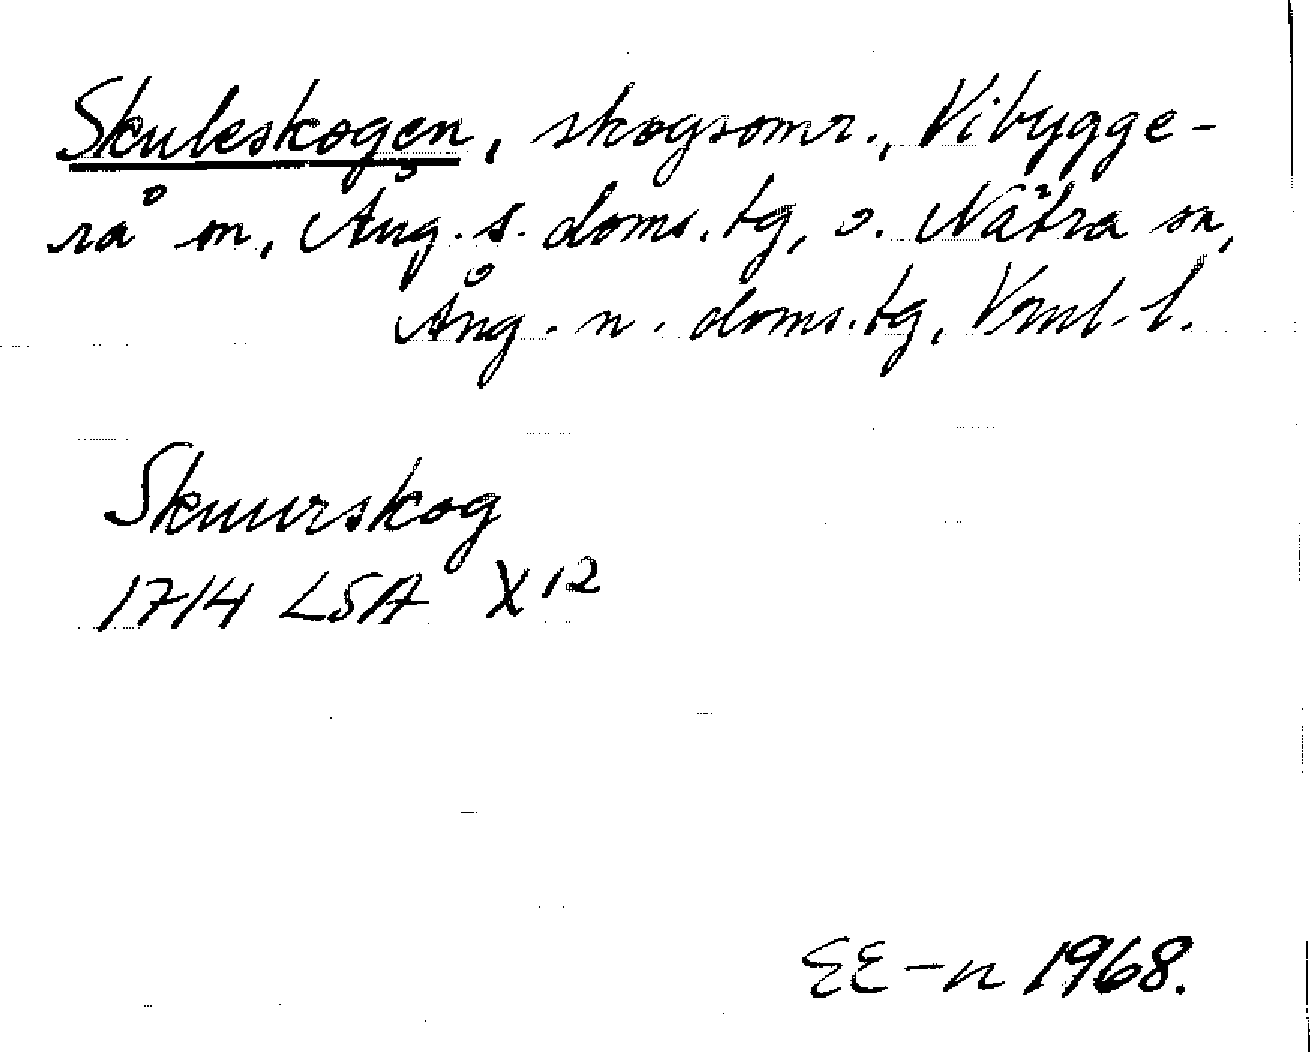 Skuleskogen, skogsomr., Vibygge-
rå sn, Ång. s. doms. tg, o. Nätra sn,
Ång. n. doms. tg, Vrnl. l.
Skuurskog
1714 LSA X 12
EE-n 1968.